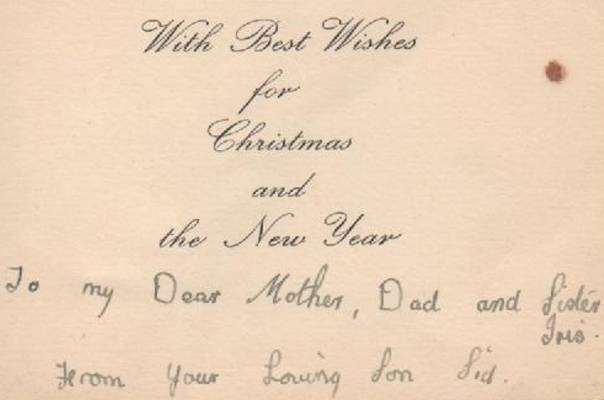 With Best Wishes
for
Christmas
and
the New Year
To my Dear Mother, Dad and Sister
Iris.
From Your Loving Son Sid.